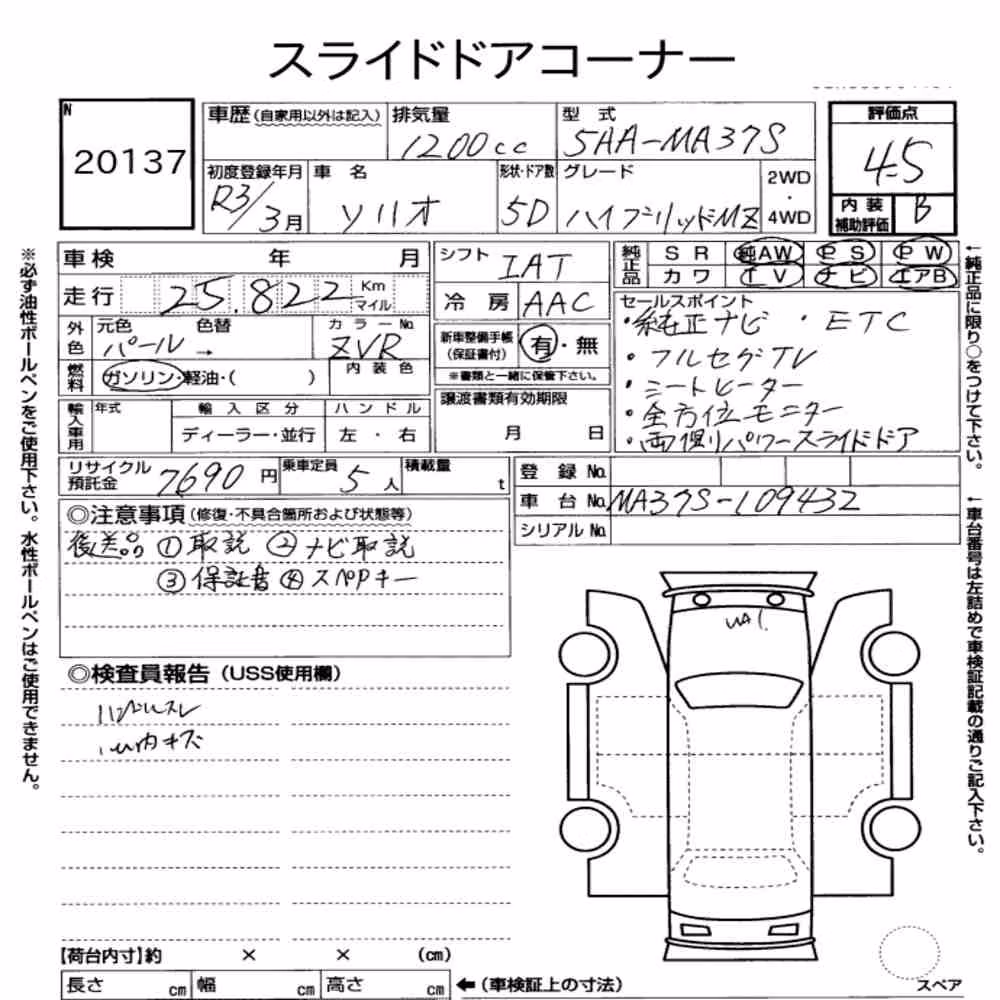 スライドドアコーナー
N
20137
車歴 (自家用以外は記入)
排気量
1200cc
型式
5AA-MA37S
評価点
4.5
初度登録年月
R3/3月
車名
ソリオ
形状・ドア数
5D
グレード
ハイブリッドMZ
2WD
・
4WD
内装
補助評価
B
車検 年 月
シフト
IAT
純正品
SR 純AW PS PW
カワ TV ナビ エアB
走行 25.822 Km マイル
冷房 AAC
セールスポイント
・純正ナビ ・ETC
・フルセグTV
・シートヒーター
・全方位モニター
・両側パワースライドドア
外色
元色 色替
パール →
カラーNo.
ZVR
新車整備手帳
(保証書付)
有・無
※書類と一緒に保管下さい。
燃料
ガソリン・軽油・( )
内装色
輸入車用
年式
輸入区分
ディーラー・並行
ハンドル
左・右
譲渡書類有効期限
月 日
リサイクル
預託金
7690円
乗車定員
5人
積載量
t
登録No.
車台No. MA37S-109432
シリアルNo.
◎注意事項 (修復・不具合箇所および状態等)
後送品 ①取説 ②ナビ取説
③保証書 ④スペアキー
◎検査員報告 (USS使用欄)
ハンドルスレ
内キズ
【荷台内寸】約 × × (cm)
長さ cm 幅 cm 高さ cm
←(車検証上の寸法)
スペア
※必ず油性ボールペンをご使用下さい。水性ボールペンはご使用できません。
←純正品に限り○をつけて下さい。
←車台番号は左詰めで車検証記載の通りご記入下さい。